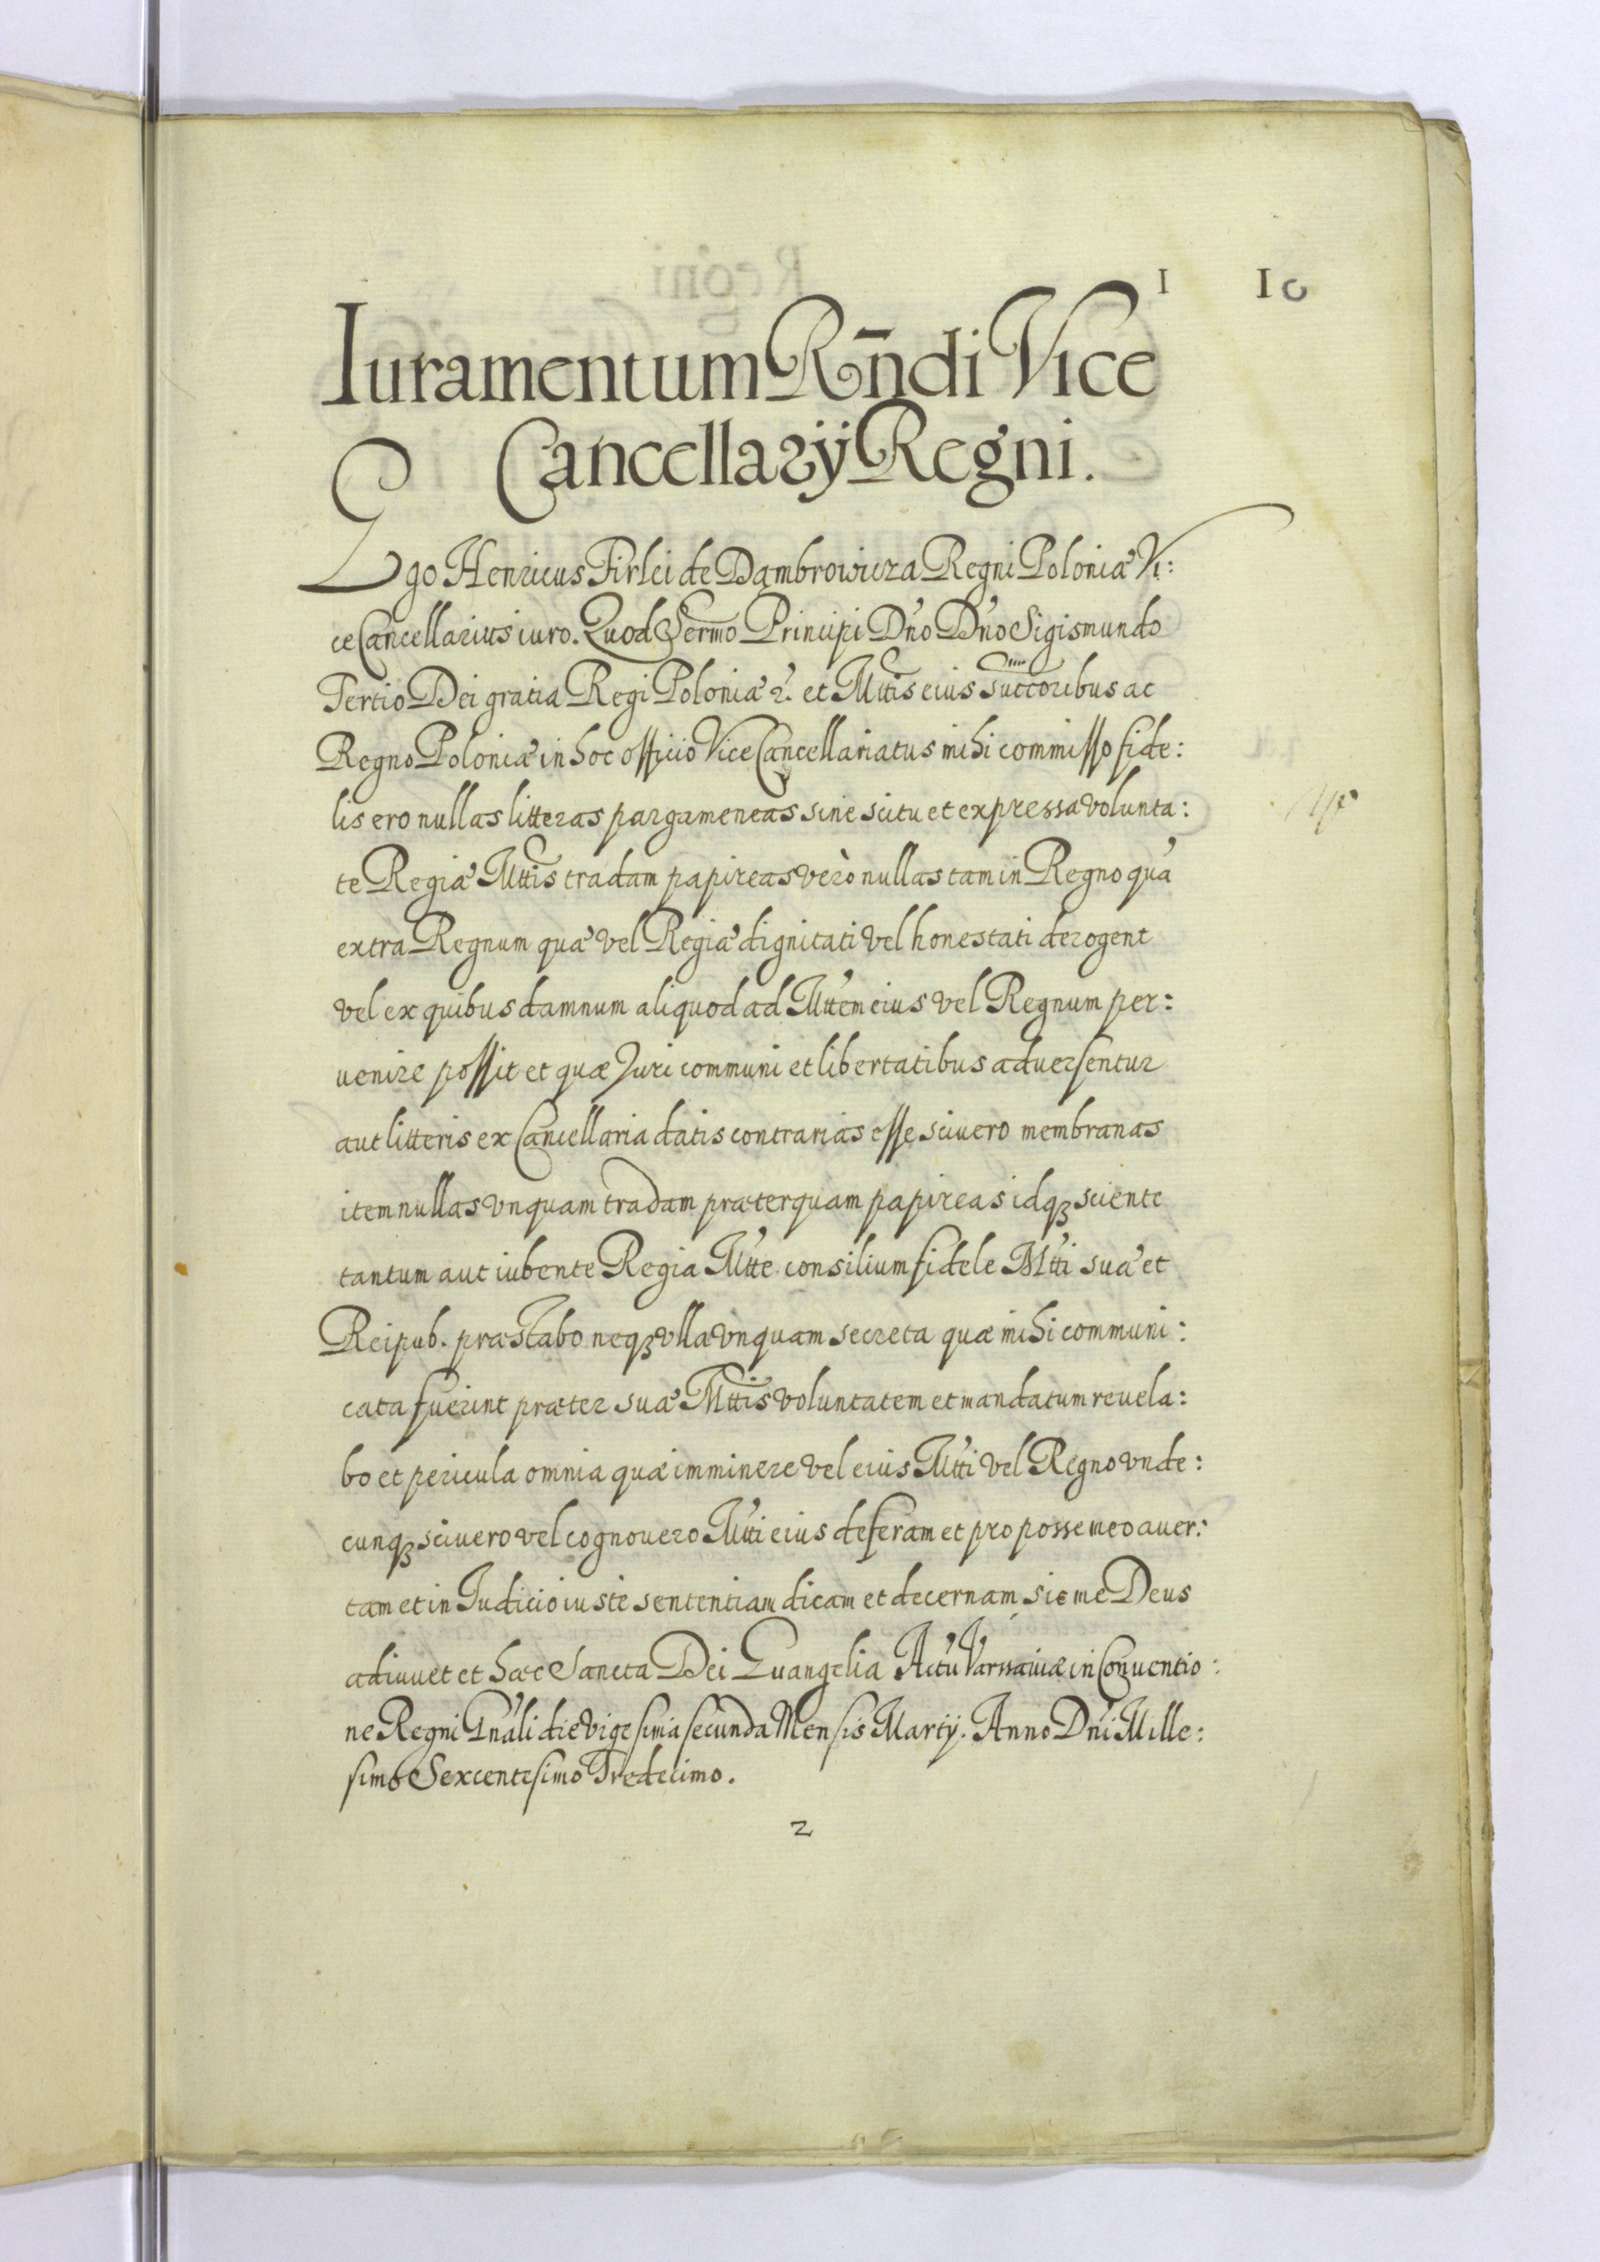 1 10
Iuramentum Rn̄di Vice
Cancellarÿ Regni.
Ego Henricus Firlei de Dąmbrowicza Regni Poloniæ Vi:
ce Cancellarius iuro. Quod Sermo Principi Dńo Dńo Sigismundo
Tertio Dei gratia Regi Poloniæ &. et Mttis eius Succoribus ac
Regno Poloniæ in hoc officio Vice Cancellariatus mihi commisso fide:
lis ero nullas litteras pargameneas sine scitu et expressa volunta:
te Regiæ Mttis tradam papireas verò nullas tam in Regno quā
extra Regnum quæ vel Regiæ dignitati vel honestati derogent
vel ex quibus damnum aliquod ad Mttem eius vel Regnum per:
uenire possit et quæ Juri communi et libertatibus aduersentur
aut litteris ex Cancellaria datis contrarias esse sciuero membranas
item nullas vnquam tradam præterquam papireas idqꝫ sciente
tantum aut iubente Regia Mtte consilium fidele Mtti suæ et
Reipub. præstabo neqꝫ vlla vnquam secreta quæ mihi communi:
cata fuerint præter suæ Mttis voluntatem et mandatum reuela:
bo et pericula omnia quæ imminere vel eius Mtti vel Regno vnde:
cunqꝫ sciuero vel cognouero Mtti eius deferam et pro posse meo auer:
tam et in Iudicio iuste sententiam dicam et decernam sic me Deus
adiuuet et hæc Sancta Dei Euangelia Actū Varssauiæ in Conuentio:
ne Regni Gnāli die vigesima secunda Mensis Martÿ. Anno Dńi Mille:
simo Sexcentesimo Tredecimo.
2